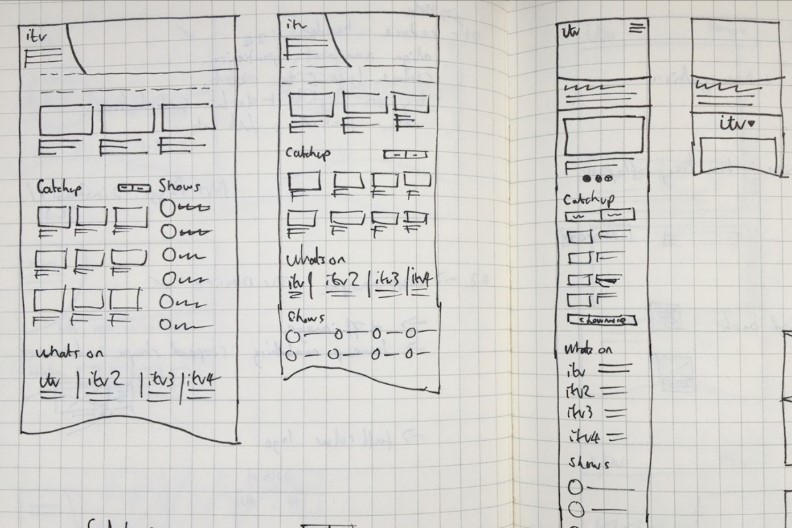 itv
Catchup
Shows
Whats on
itv | itv2 | itv3 | itv4
itv
Catchup
Whats on
itv1 | itv2 | itv3 | itv4
Shows
itv
Catchup
show more
Whats on
itv
itv2
itv3
itv4
Shows
itv♥